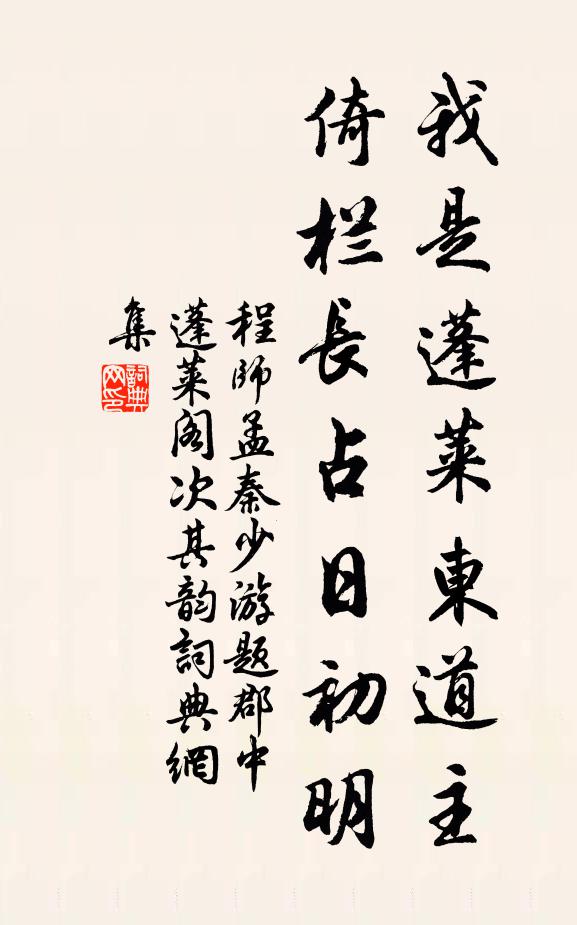 我是蓬萊東道主
倚栏長占日初明
程師孟秦少游題郡中
蓬萊阁次其韵詞典網
集
詞典
网印